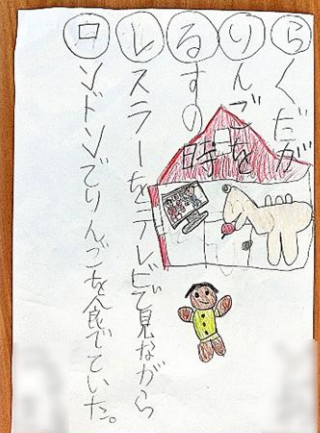 らくだが
りんごを
るすの時
レスラーをテレビで見ながら
ロンドンでりんごを食でていた。